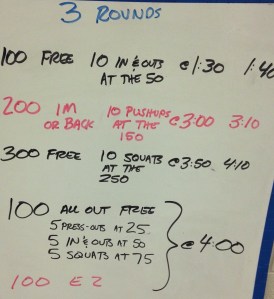 3 ROUNDS
100 FREE 10 IN & OUTS @ 1:30 1:40
AT THE 50
200 IM 10 PUSHUPS @ 3:00 3:10
OR BACK AT THE
150
300 FREE 10 SQUATS @ 3:50 4:10
AT THE
250
100 ALL OUT FREE
5 PRESS-OUTS AT 25
5 IN & OUTS AT 50 @ 4:00
5 SQUATS AT 75
100 EZ